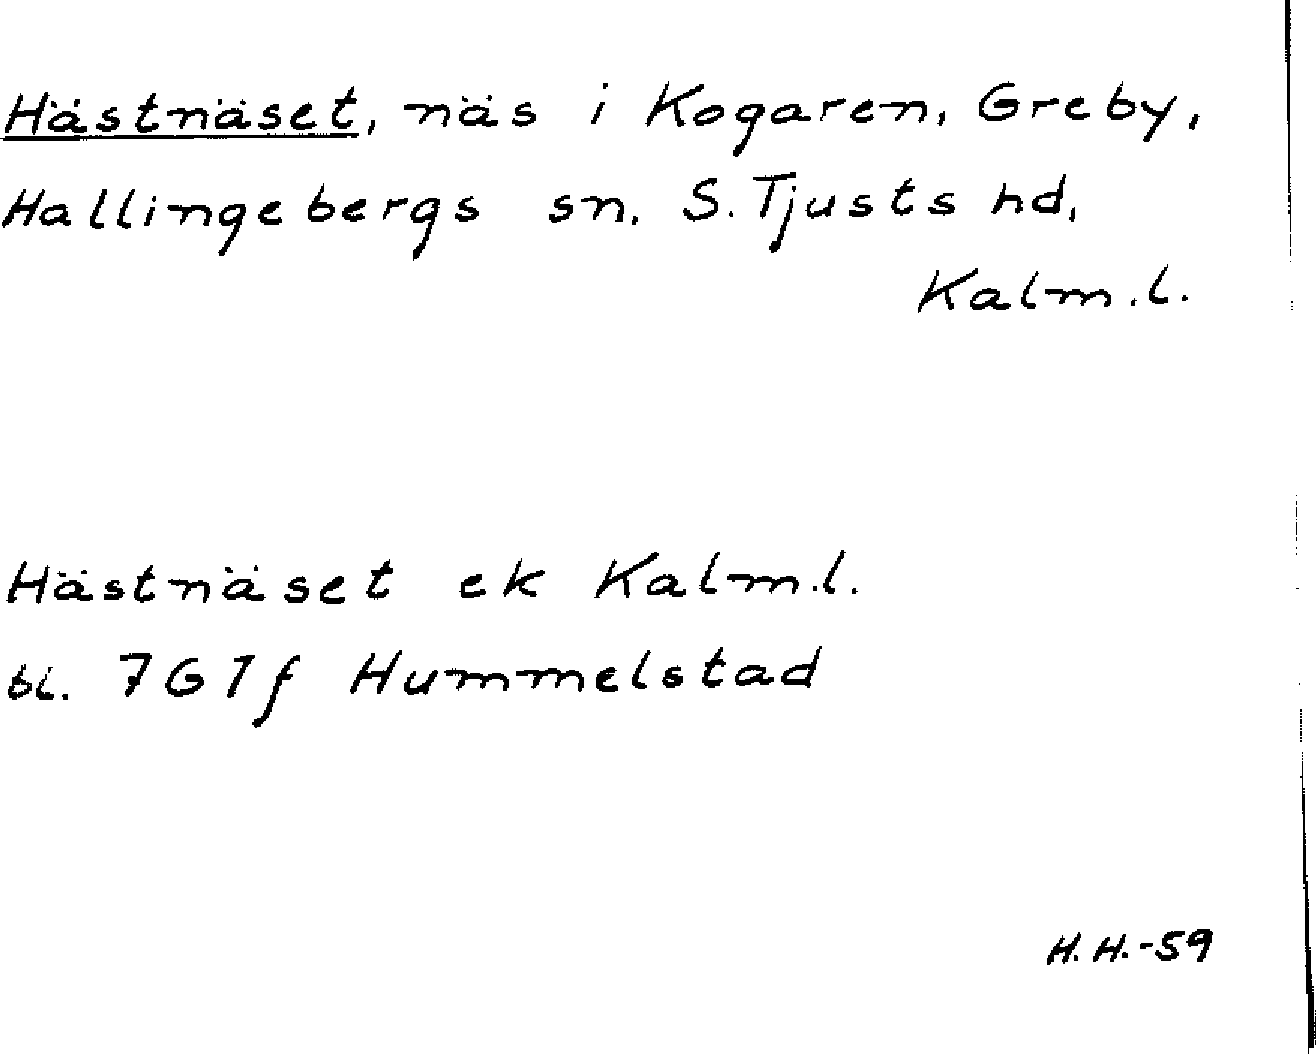 Hästnäset, näs i Kogaren, Greby,
Hallingebergs sn. S. Tjusts hd,
Kalm.l.
Hästnäset ek Kalm.l.
bl. 7G7f Hummelstad
H.H.-59